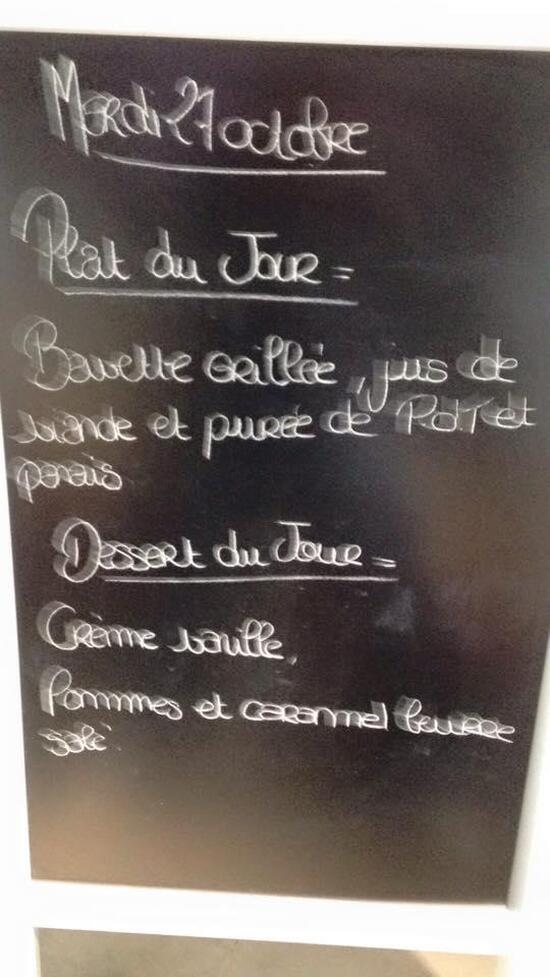 Mardi 27 octobre
Plat du Jour =
Bavette Grillée, jus de
viande et purée de P.d.T et
panais
Dessert du Jour =
Crème vanille,
Pommes et caranmel beurre
salé.